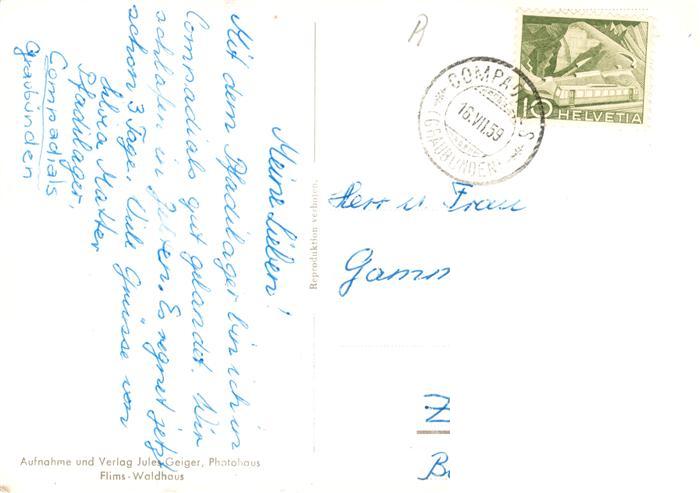 Meine Lieben!
Mit dem Pfadilager bin ich in
Compadials gut gelandet. Wir
schlafen in Zelten. Es regnet jetzt
schon 3 Tage. Viele Grüsse von
Silvia Matter
Pfadilager,
Compadials
Graubünden
Aufnahme und Verlag Jules Geiger, Photohaus
Flims-Waldhaus
Reproduktion verboten.
R
COMPADIALS
16.VII.59
(GRAUBÜNDEN)
10 HELVETIA
Herr u. Frau
Gamm
Z
B